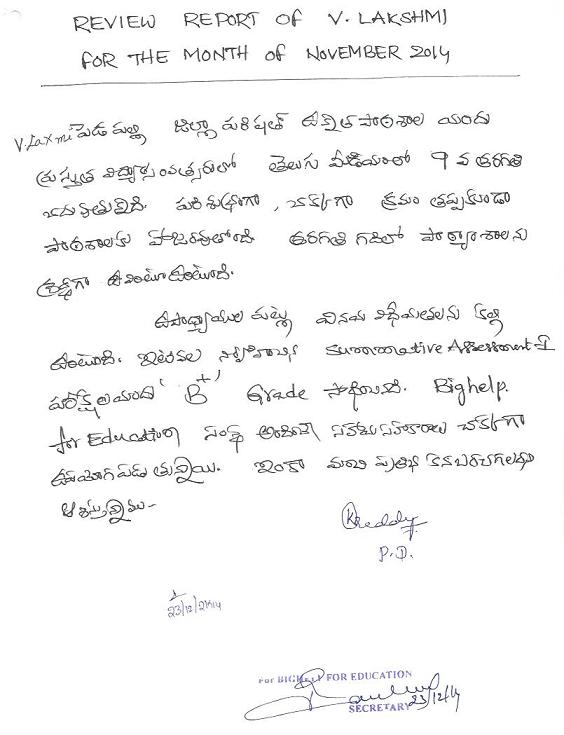 REVIEW REPORT OF V. LAKSHMI
FOR THE MONTH OF NOVEMBER 2014
V. Laxmi పెడపల్లి జిల్లా పరిషత్ ఉన్నత పాఠశాల యందు
ప్రస్తుత విద్యాసంవత్సరంలో తెలుగు మీడియంలో 9 వ తరగతి
చదువుతున్నది. పరిశుభ్రంగా, చక్కగా క్రమం తప్పకుండా
పాఠశాలకు హాజరవుతోంది. తరగతి గదిలో పాఠ్యాంశాలను
శ్రద్ధగా వింటూ ఉంటుంది.
ఉపాధ్యాయుల పట్ల వినయ విధేయతలను కల్గి
ఉంటుంది. ఇటీవల నిర్వహించిన Summative Assessment-I
పరీక్షలయందు 'B+' Grade సాధించింది. Bighelp
for Education సంస్థ అందించే సహాయసహకారాలు చక్కగా
ఉపయోగపడుతున్నాయి. ఇంకా మంచి ప్రతిభ కనబరచగలదని
ఆశిస్తున్నాము-
KReddy
P.D.
23/12/2014
For BIGHELP FOR EDUCATION
SECRETARY 23/12/14